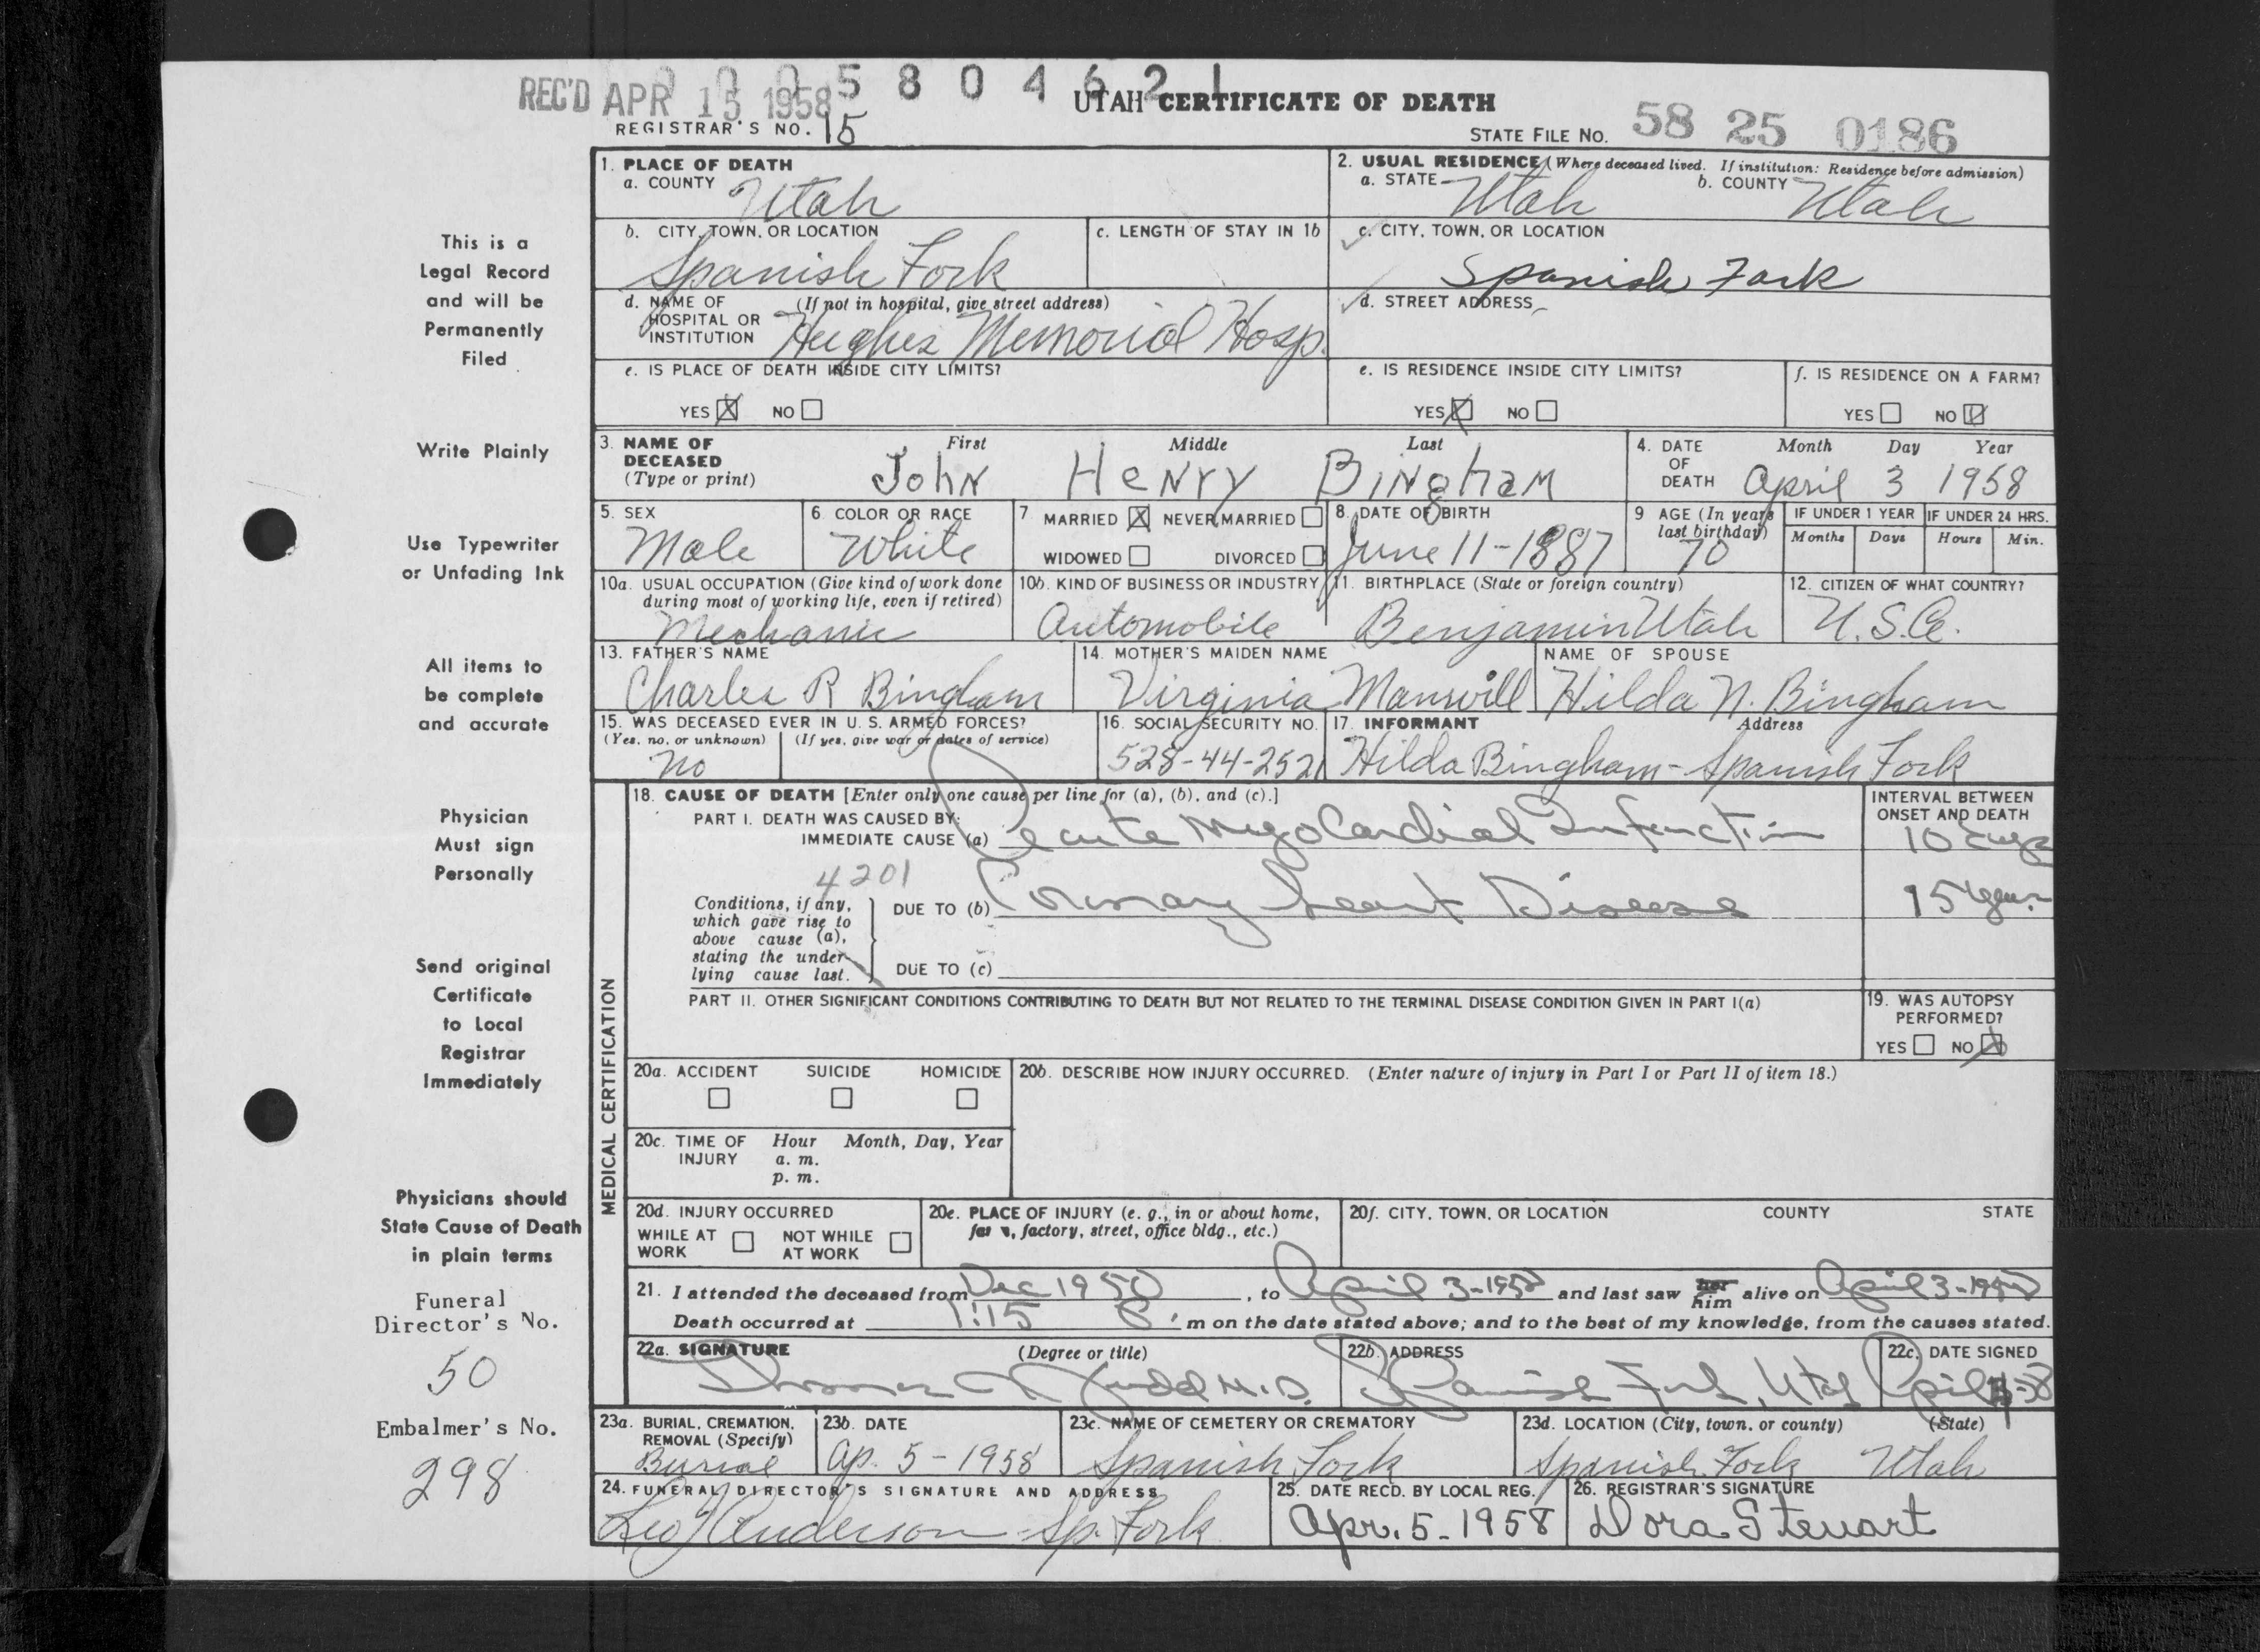 0 0 0 5 8 0 4 6 2 1
REC'D APR 15 1958
UTAH CERTIFICATE OF DEATH
REGISTRAR'S NO. 15
STATE FILE NO. 58 25 0186
This is a
Legal Record
and will be
Permanently
Filed
Write Plainly
Use Typewriter
or Unfading Ink
All items to
be complete
and accurate
Physician
Must sign
Personally
Send original
Certificate
to Local
Registrar
Immediately
Physicians should
State Cause of Death
in plain terms
Funeral
Director's No.
50
Embalmer's No.
298
1. PLACE OF DEATH
a. COUNTY Utah
2. USUAL RESIDENCE (Where deceased lived. If institution: Residence before admission)
a. STATE Utah b. COUNTY Utah
b. CITY, TOWN, OR LOCATION
Spanish Fork
c. LENGTH OF STAY IN 1b
c. CITY, TOWN, OR LOCATION
Spanish Fork
d. NAME OF (If not in hospital, give street address)
HOSPITAL OR
INSTITUTION Hughes Memorial Hosp.
d. STREET ADDRESS
e. IS PLACE OF DEATH INSIDE CITY LIMITS?
YES X NO
e. IS RESIDENCE INSIDE CITY LIMITS?
YES X NO
f. IS RESIDENCE ON A FARM?
YES NO
3. NAME OF DECEASED (Type or print)
First Middle Last
John Henry Bingham
4. DATE OF DEATH
Month Day Year
April 3 1958
5. SEX
Male
6 COLOR OR RACE
White
7 MARRIED X NEVER MARRIED
WIDOWED DIVORCED
8. DATE OF BIRTH
June 11-1887
9 AGE (In years last birthday)
70
IF UNDER 1 YEAR IF UNDER 24 HRS.
Months Days Hours Min.
10a. USUAL OCCUPATION (Give kind of work done
during most of working life, even if retired)
Mechanic
10b. KIND OF BUSINESS OR INDUSTRY
Automobile
11. BIRTHPLACE (State or foreign country)
Benjamin Utah
12. CITIZEN OF WHAT COUNTRY?
U.S.A.
13. FATHER'S NAME
Charles R Bingham
14. MOTHER'S MAIDEN NAME
Virginia Manwill
NAME OF SPOUSE
Hilda N. Bingham
15. WAS DECEASED EVER IN U. S. ARMED FORCES?
(Yes, no, or unknown) (If yes, give war or dates of service)
No
16. SOCIAL SECURITY NO.
528-44-2521
17. INFORMANT Address
Hilda Bingham - Spanish Fork
MEDICAL CERTIFICATION
18. CAUSE OF DEATH [Enter only one cause per line for (a), (b), and (c).]
PART I. DEATH WAS CAUSED BY:
IMMEDIATE CAUSE (a) Acute Myocardial Infarction
INTERVAL BETWEEN
ONSET AND DEATH
10 Days
4201
Conditions, if any,
which gave rise to
above cause (a),
stating the under-
lying cause last.
DUE TO (b) Coronary Heart Disease
15 Years
DUE TO (c)
PART II. OTHER SIGNIFICANT CONDITIONS CONTRIBUTING TO DEATH BUT NOT RELATED TO THE TERMINAL DISEASE CONDITION GIVEN IN PART I(a)
19. WAS AUTOPSY
PERFORMED?
YES NO X
20a. ACCIDENT SUICIDE HOMICIDE
20b. DESCRIBE HOW INJURY OCCURRED. (Enter nature of injury in Part I or Part II of item 18.)
20c. TIME OF INJURY
Hour Month, Day, Year
a. m.
p. m.
20d. INJURY OCCURRED
WHILE AT WORK NOT WHILE AT WORK
20e. PLACE OF INJURY (e. g., in or about home,
farm, factory, street, office bldg., etc.)
20f. CITY, TOWN, OR LOCATION COUNTY STATE
21. I attended the deceased from Dec 1950, to April 3-1958 and last saw her him alive on April 3-1958
Death occurred at 1:15 P. m on the date stated above; and to the best of my knowledge, from the causes stated.
22a. SIGNATURE (Degree or title)
Judd M.D.
22b. ADDRESS
Spanish Fork, Utah
22c. DATE SIGNED
April -58
23a. BURIAL, CREMATION,
REMOVAL (Specify)
Burial
23b. DATE
Ap. 5-1958
23c. NAME OF CEMETERY OR CREMATORY
Spanish Fork
23d. LOCATION (City, town, or county) (State)
Spanish Fork Utah
24. FUNERAL DIRECTOR'S SIGNATURE AND ADDRESS
Leo Anderson Sp. Fork
25. DATE RECD. BY LOCAL REG.
Apr. 5-1958
26. REGISTRAR'S SIGNATURE
Dora Stewart